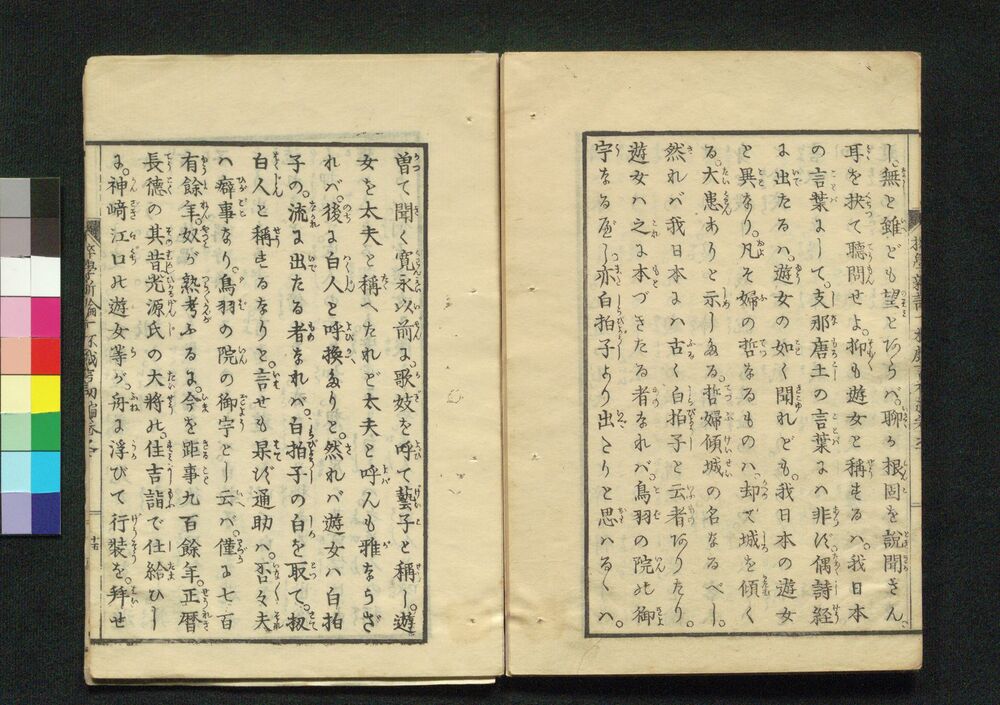 し。無と雖ども望とあらバ。聊か根固を説聞さん
耳を抉て聴問せよ。抑も遊女と称するハ。我日本
の言葉にして。支那唐土の言葉にハ非ず。偶詩経
に出たるハ。遊女の如く聞れども。我日本の遊女
と異なり。凡そ婦の哲なるものハ。却て城を傾く
る。大患ありと示しある。哲婦傾城の名なるべし。
然れバ我日本にハ古く白拍子と云者ありたり。
遊女ハ之に本づきたる者なれバ。鳥羽の院の御
宇なる歟し亦白拍子より出たりと思ハるゝハ。
曽て聞く寛永以前に。歌妓を呼て藝子と稱し。遊
女を太夫と称へたれど太夫と呼んも雅ならざ
れバ。後に白人と呼換たりと。然れバ遊女ハ白拍
子の。流に出たる者なれバ白拍子の白を取て。扨
白人と稱するなりと。言せも果ず通助ハ。否々夫
ハ癖事なり。鳥羽の院の御宇とし云バ。僅に七百
有餘年。奴が熟考ふるに。今を距事九百餘年。正暦
長徳の其昔光源氏の大將の。住吉詣で仕給ひし
に。神﨑江口の遊女等が。舟に浮びて行装を。拜せ